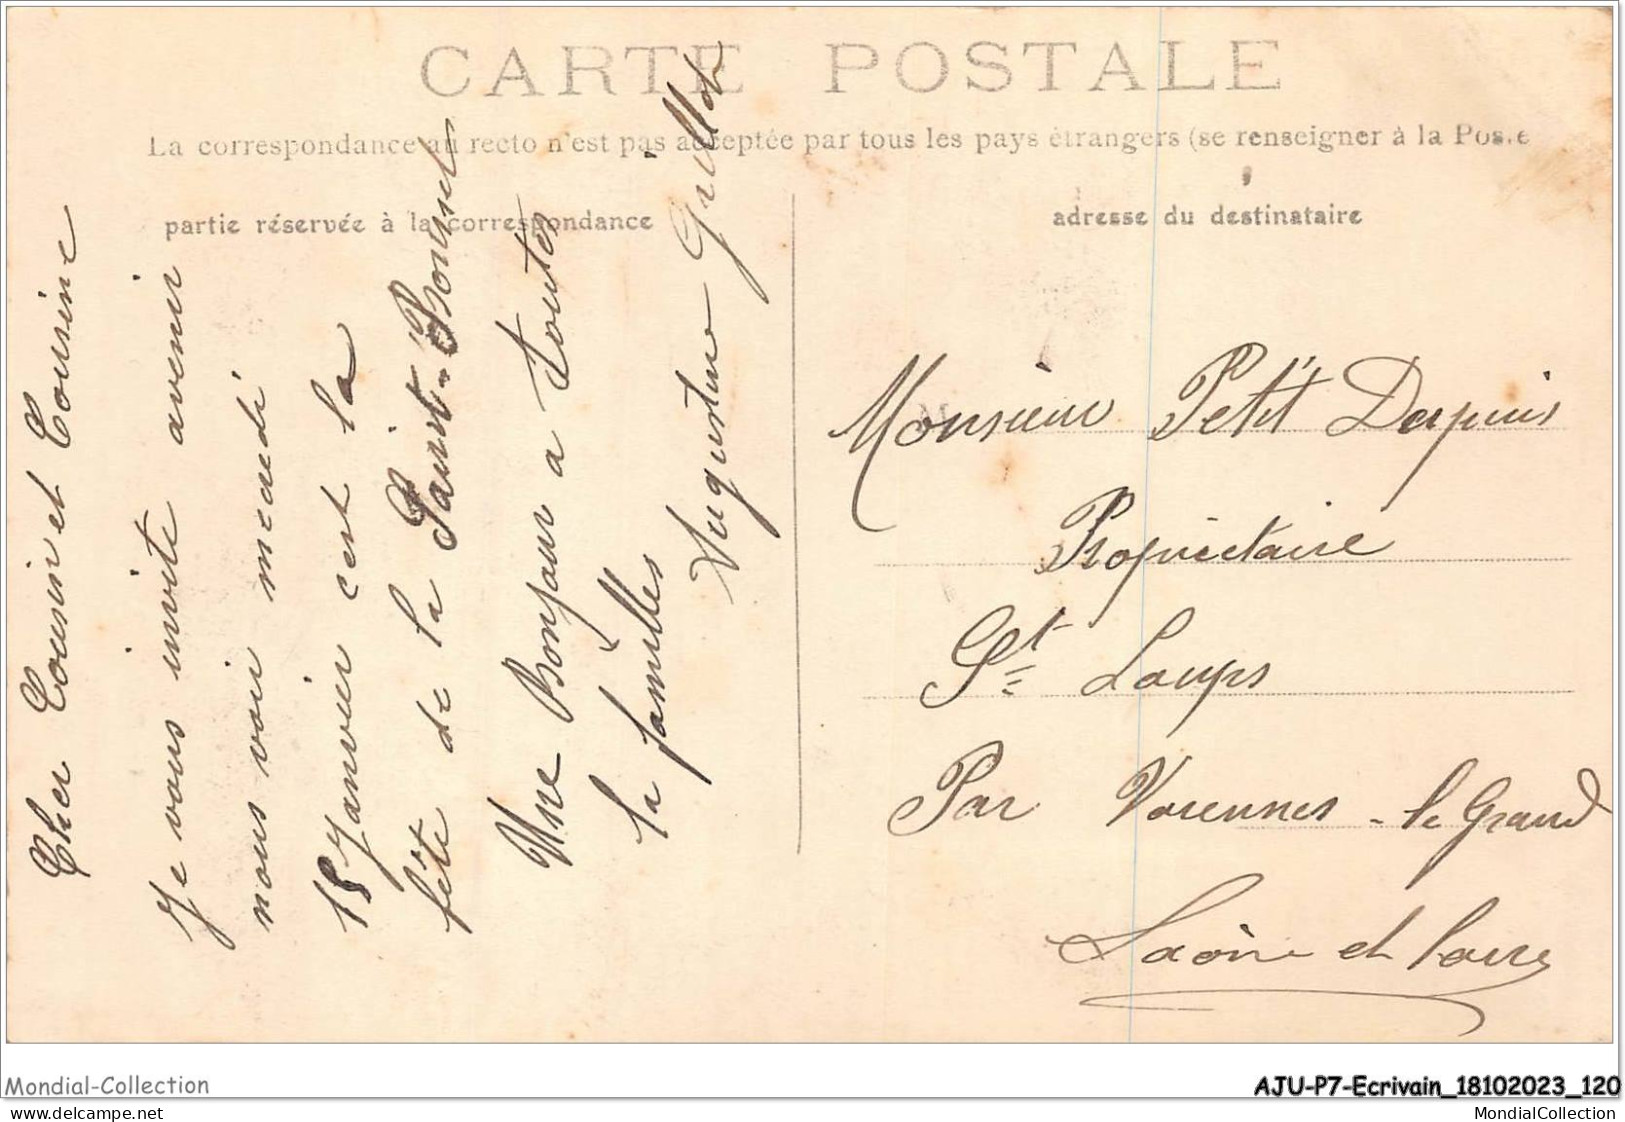 CARTE POSTALE
La correspondance au recto n'est pas acceptée par tous les pays étrangers (se renseigner à la Poste
partie réservée à la correspondance
adresse du destinataire
Cher Cousin et Cousine
Je vous invite a venir
nous voir mecredi
15 Janvier cest la
fête de la Saint-Bonnet
Une Bonjour a toutes
la familles
Augustine Grillot
Monsieur Petit Dupuis
Propriétaire
St Loups
Par Varennes-le Grand
Saône et Loire
Mondial-Collection
AJU-P7-Ecrivain_18102023_120
www.delcampe.net
MondialCollection